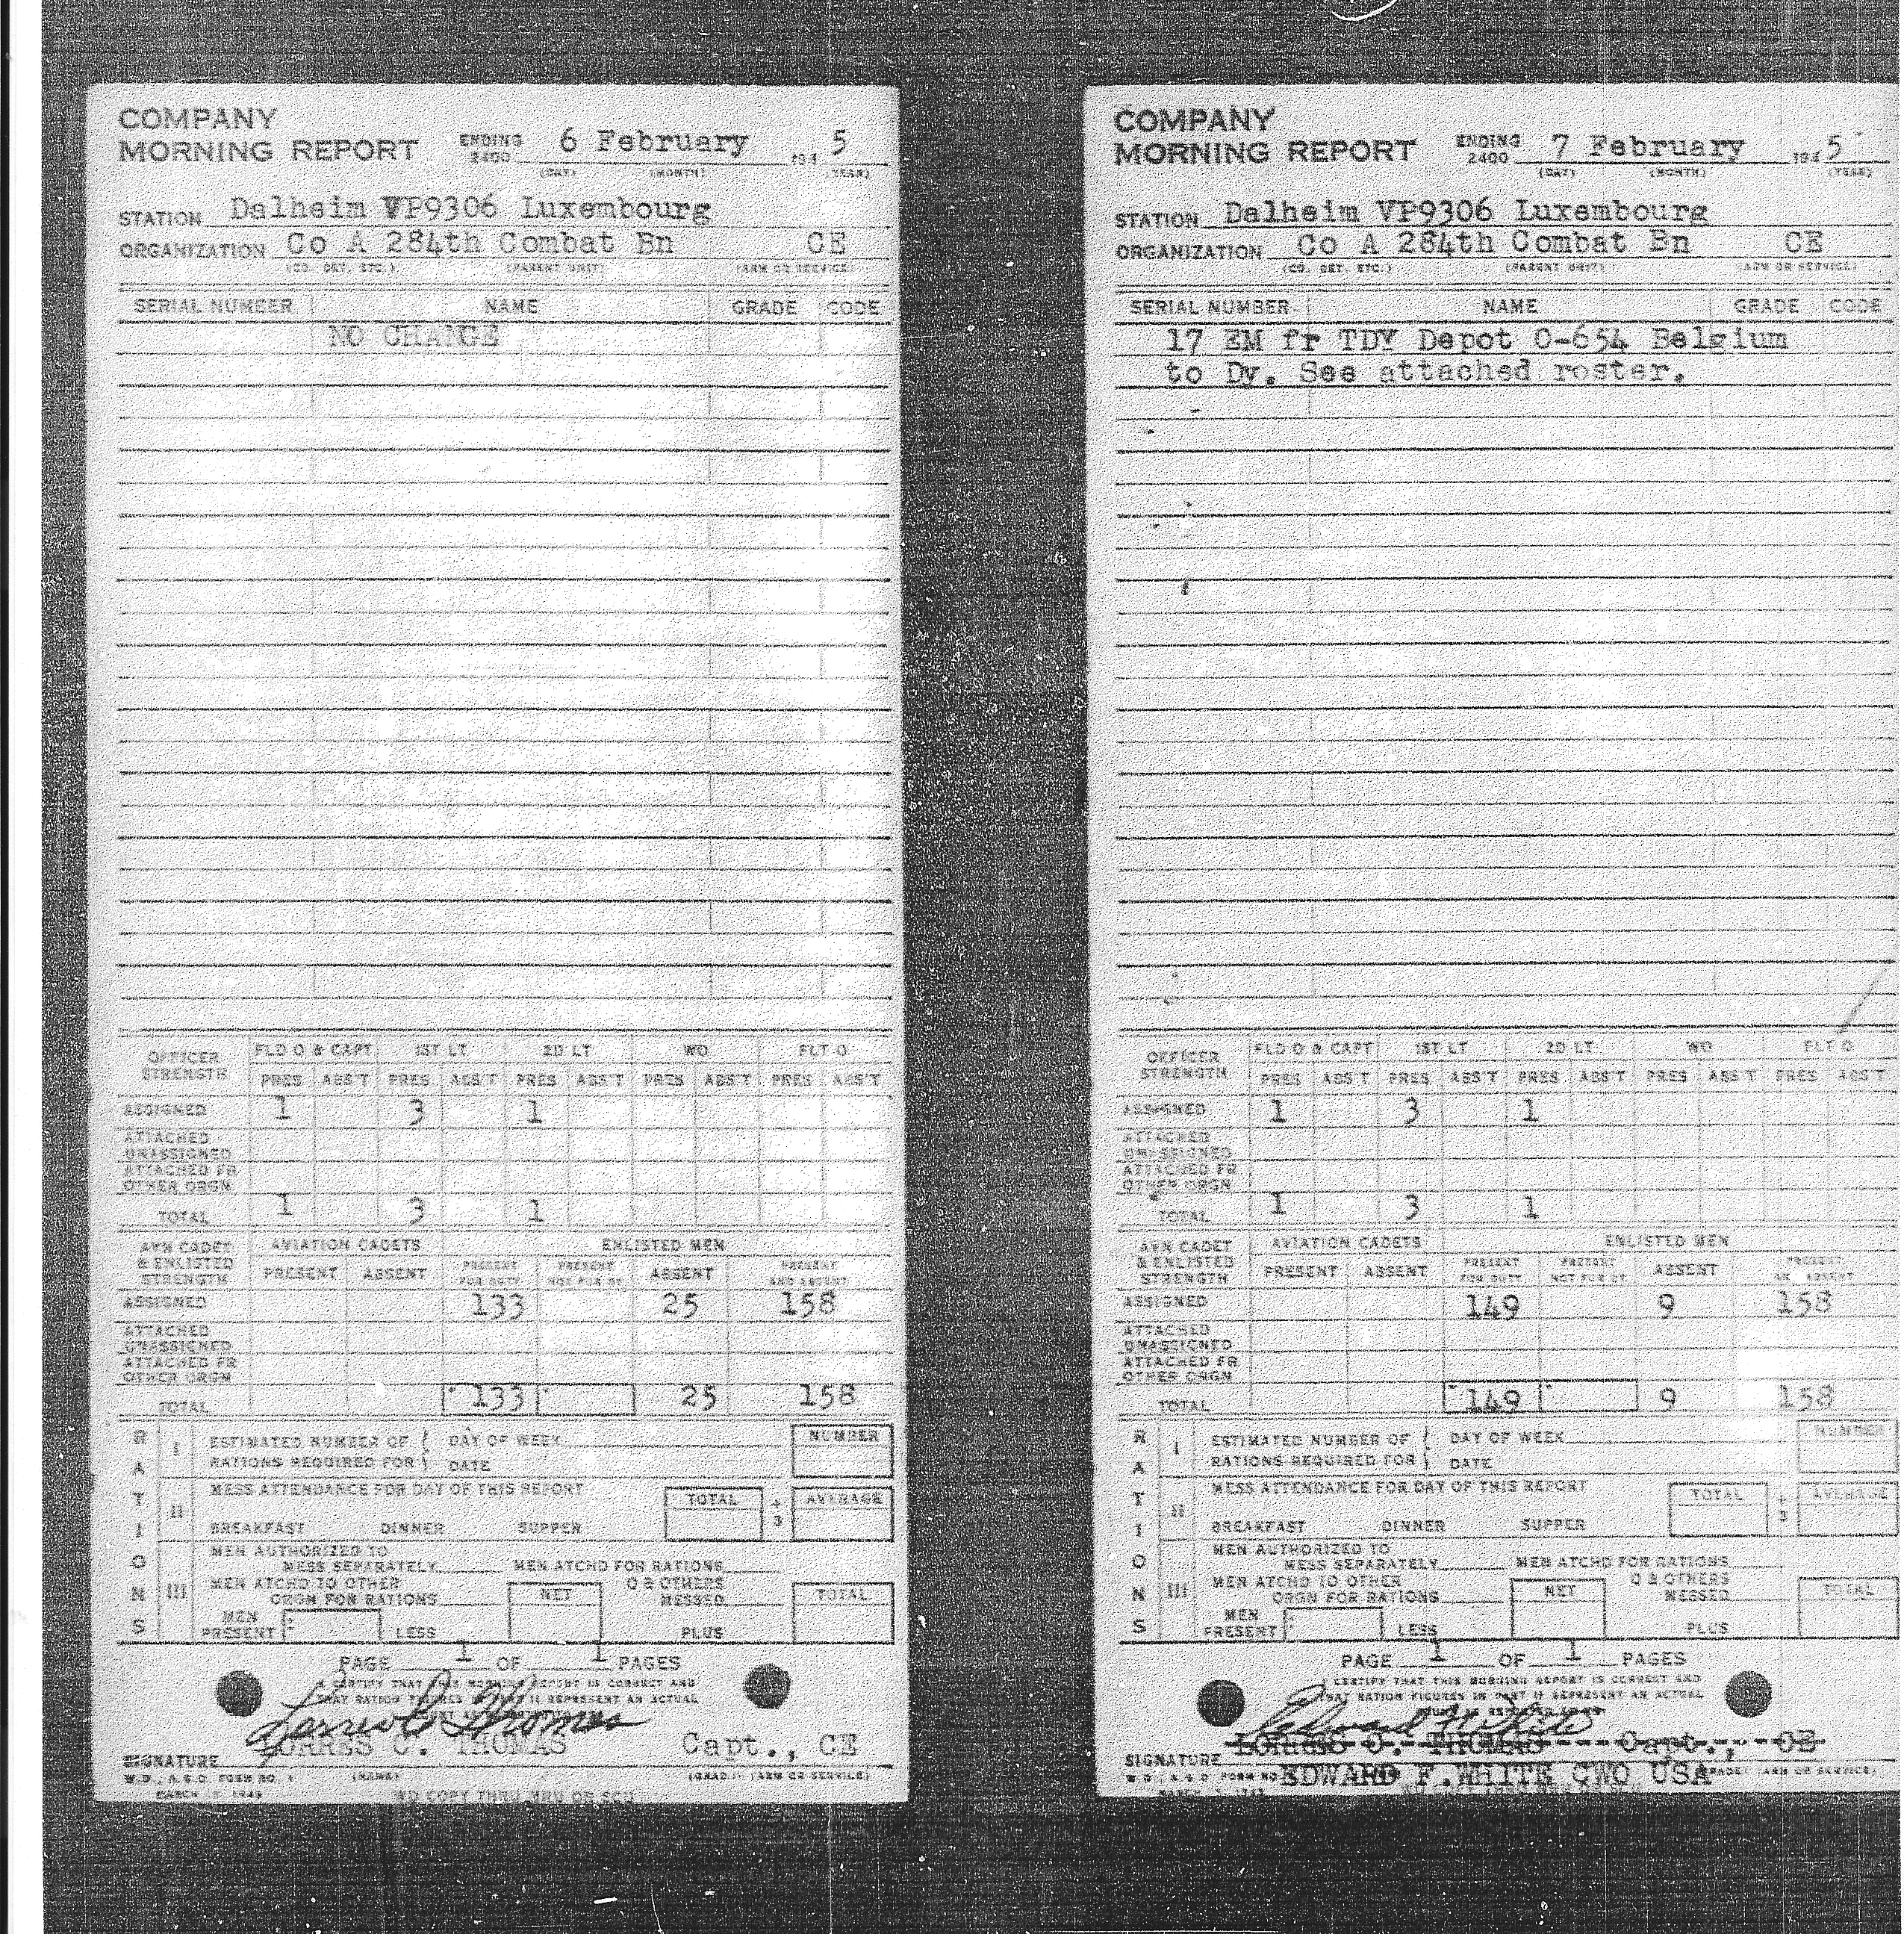 COMPANY
MORNING REPORT ENDING 2400 6 February 194 5
(DAY) (MONTH) (YEAR)
STATION Dalheim VP9306 Luxembourg
ORGANIZATION Co A 284th Combat Bn CE
(CO. DET. ETC.) (PARENT UNIT) (ARM OR SERVICE)
SERIAL NUMBER NAME GRADE CODE
NO CHANGE
OFFICER STRENGTH FLD O & CAPT 1ST LT 2D LT WO FLT O
PRES ABS'T PRES ABS'T PRES ABS'T PRES ABS'T PRES ABS'T
ASSIGNED 1 3 1
ATTACHED UNASSIGNED
ATTACHED FR OTHER ORGN
TOTAL 1 3 1
AVN CADET & ENLISTED STRENGTH AVIATION CADETS ENLISTED MEN
PRESENT ABSENT PRESENT FOR DUTY PRESENT NOT FOR DY ABSENT PRESENT AND ABSENT
ASSIGNED 133 25 158
ATTACHED UNASSIGNED
ATTACHED FR OTHER ORGN
TOTAL 133 25 158
RATIONS
I ESTIMATED NUMBER OF DAY OF WEEK NUMBER
RATIONS REQUIRED FOR DATE
II MESS ATTENDANCE FOR DAY OF THIS REPORT TOTAL ÷ 3 AVERAGE
BREAKFAST DINNER SUPPER
III MEN AUTHORIZED TO
MESS SEPARATELY MEN ATCHD FOR RATIONS
MEN ATCHD TO OTHER ORGN FOR RATIONS NET O & OTHERS MESSED TOTAL
MEN PRESENT LESS PLUS
PAGE 1 OF 1 PAGES
I CERTIFY THAT THIS MORNING REPORT IS CORRECT AND
THAT RATION FIGURES IN PART II REPRESENT AN ACTUAL
C. THOMAS Capt., CE
SIGNATURE (NAME) (GRADE) (ARM OR SERVICE)
W.D., A.G.O. FORM NO. 1
WD COPY THRU MRU OR SCU
COMPANY
MORNING REPORT ENDING 2400 7 February 194 5
(DAY) (MONTH) (YEAR)
STATION Dalheim VP9306 Luxembourg
ORGANIZATION Co A 284th Combat Bn CE
(CO. DET. ETC.) (PARENT UNIT) (ARM OR SERVICE)
SERIAL NUMBER NAME GRADE CODE
17 EM fr TDY Depot O-654 Belgium
to Dy. See attached roster.
OFFICER STRENGTH FLD O & CAPT 1ST LT 2D LT WO FLT O
PRES ABS'T PRES ABS'T PRES ABS'T PRES ABS'T PRES ABS'T
ASSIGNED 1 3 1
ATTACHED UNASSIGNED
ATTACHED FR OTHER ORGN
TOTAL 1 3 1
AVN CADET & ENLISTED STRENGTH AVIATION CADETS ENLISTED MEN
PRESENT ABSENT PRESENT FOR DUTY PRESENT NOT FOR DY ABSENT PRESENT AND ABSENT
ASSIGNED 149 9 158
ATTACHED UNASSIGNED
ATTACHED FR OTHER ORGN
TOTAL 149 9 158
RATIONS
I ESTIMATED NUMBER OF DAY OF WEEK NUMBER
RATIONS REQUIRED FOR DATE
II MESS ATTENDANCE FOR DAY OF THIS REPORT TOTAL ÷ 3 AVERAGE
BREAKFAST DINNER SUPPER
III MEN AUTHORIZED TO
MESS SEPARATELY MEN ATCHD FOR RATIONS
MEN ATCHD TO OTHER ORGN FOR RATIONS NET O & OTHERS MESSED TOTAL
MEN PRESENT LESS PLUS
PAGE 1 OF 1 PAGES
I CERTIFY THAT THIS MORNING REPORT IS CORRECT AND
THAT RATION FIGURES IN PART II REPRESENT AN ACTUAL
Edward F White
C. THOMAS Capt., CE
SIGNATURE
W.D., A.G.O. FORM NO. EDWARD F. WHITE CWO USA (GRADE) (ARM OR SERVICE)